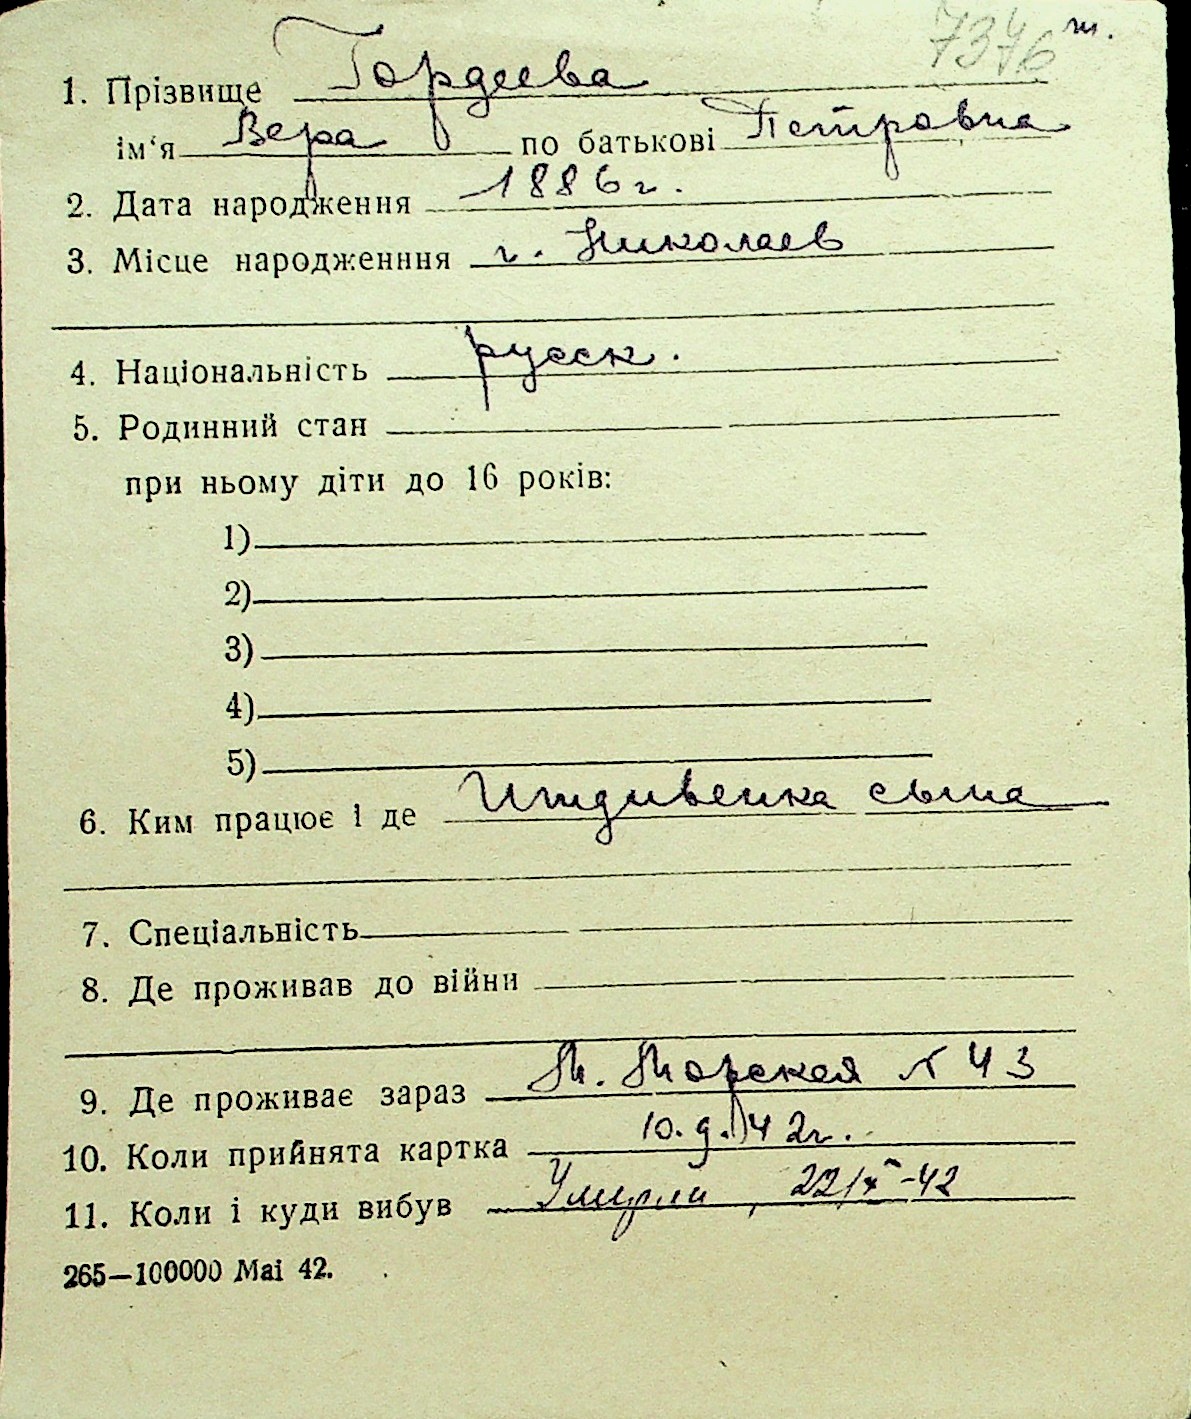 7376 ж.
1. Прізвище Гордеева
ім'я Вера по батькові Петровна
2. Дата народження 1886 г.
3. Місце народженння г. Николаев
4. Національність русск.
5. Родинний стан
при ньому діти до 16 років:
1)
2)
3)
4)
5)
6. Ким працює і де Иждивенка сына
7. Спеціальність
8. Де проживав до війни
9. Де проживає зараз М. Морская № 43
10. Коли прийнята картка 10.9.42г.
11. Коли і куди вибув Умерла, 22/X-42
265—100000 Маі 42.